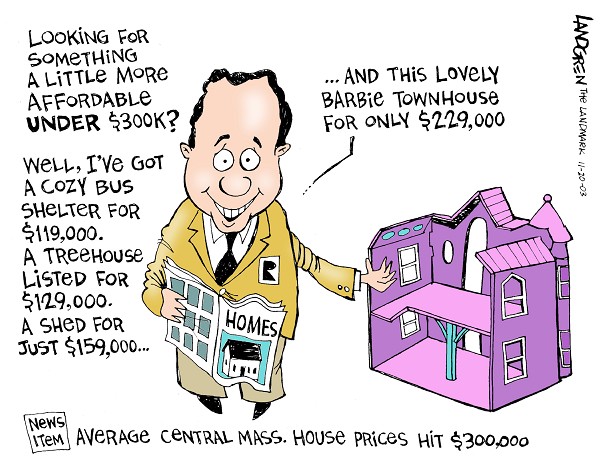 LOOKING FOR
SOMETHING
A LITTLE MORE
AFFORDABLE
UNDER $300K?
WELL, I'VE GOT
A COZY BUS
SHELTER FOR
$119,000.
A TREEHOUSE
LISTED FOR
$129,000.
A SHED FOR
JUST $159,000...
...AND THIS LOVELY
BARBIE TOWNHOUSE
FOR ONLY $229,000
R
HOMES
LANDGREN THE LANDMARK 11-20-03
NEWS
ITEM
AVERAGE CENTRAL MASS. HOUSE PRICES HIT $300,000